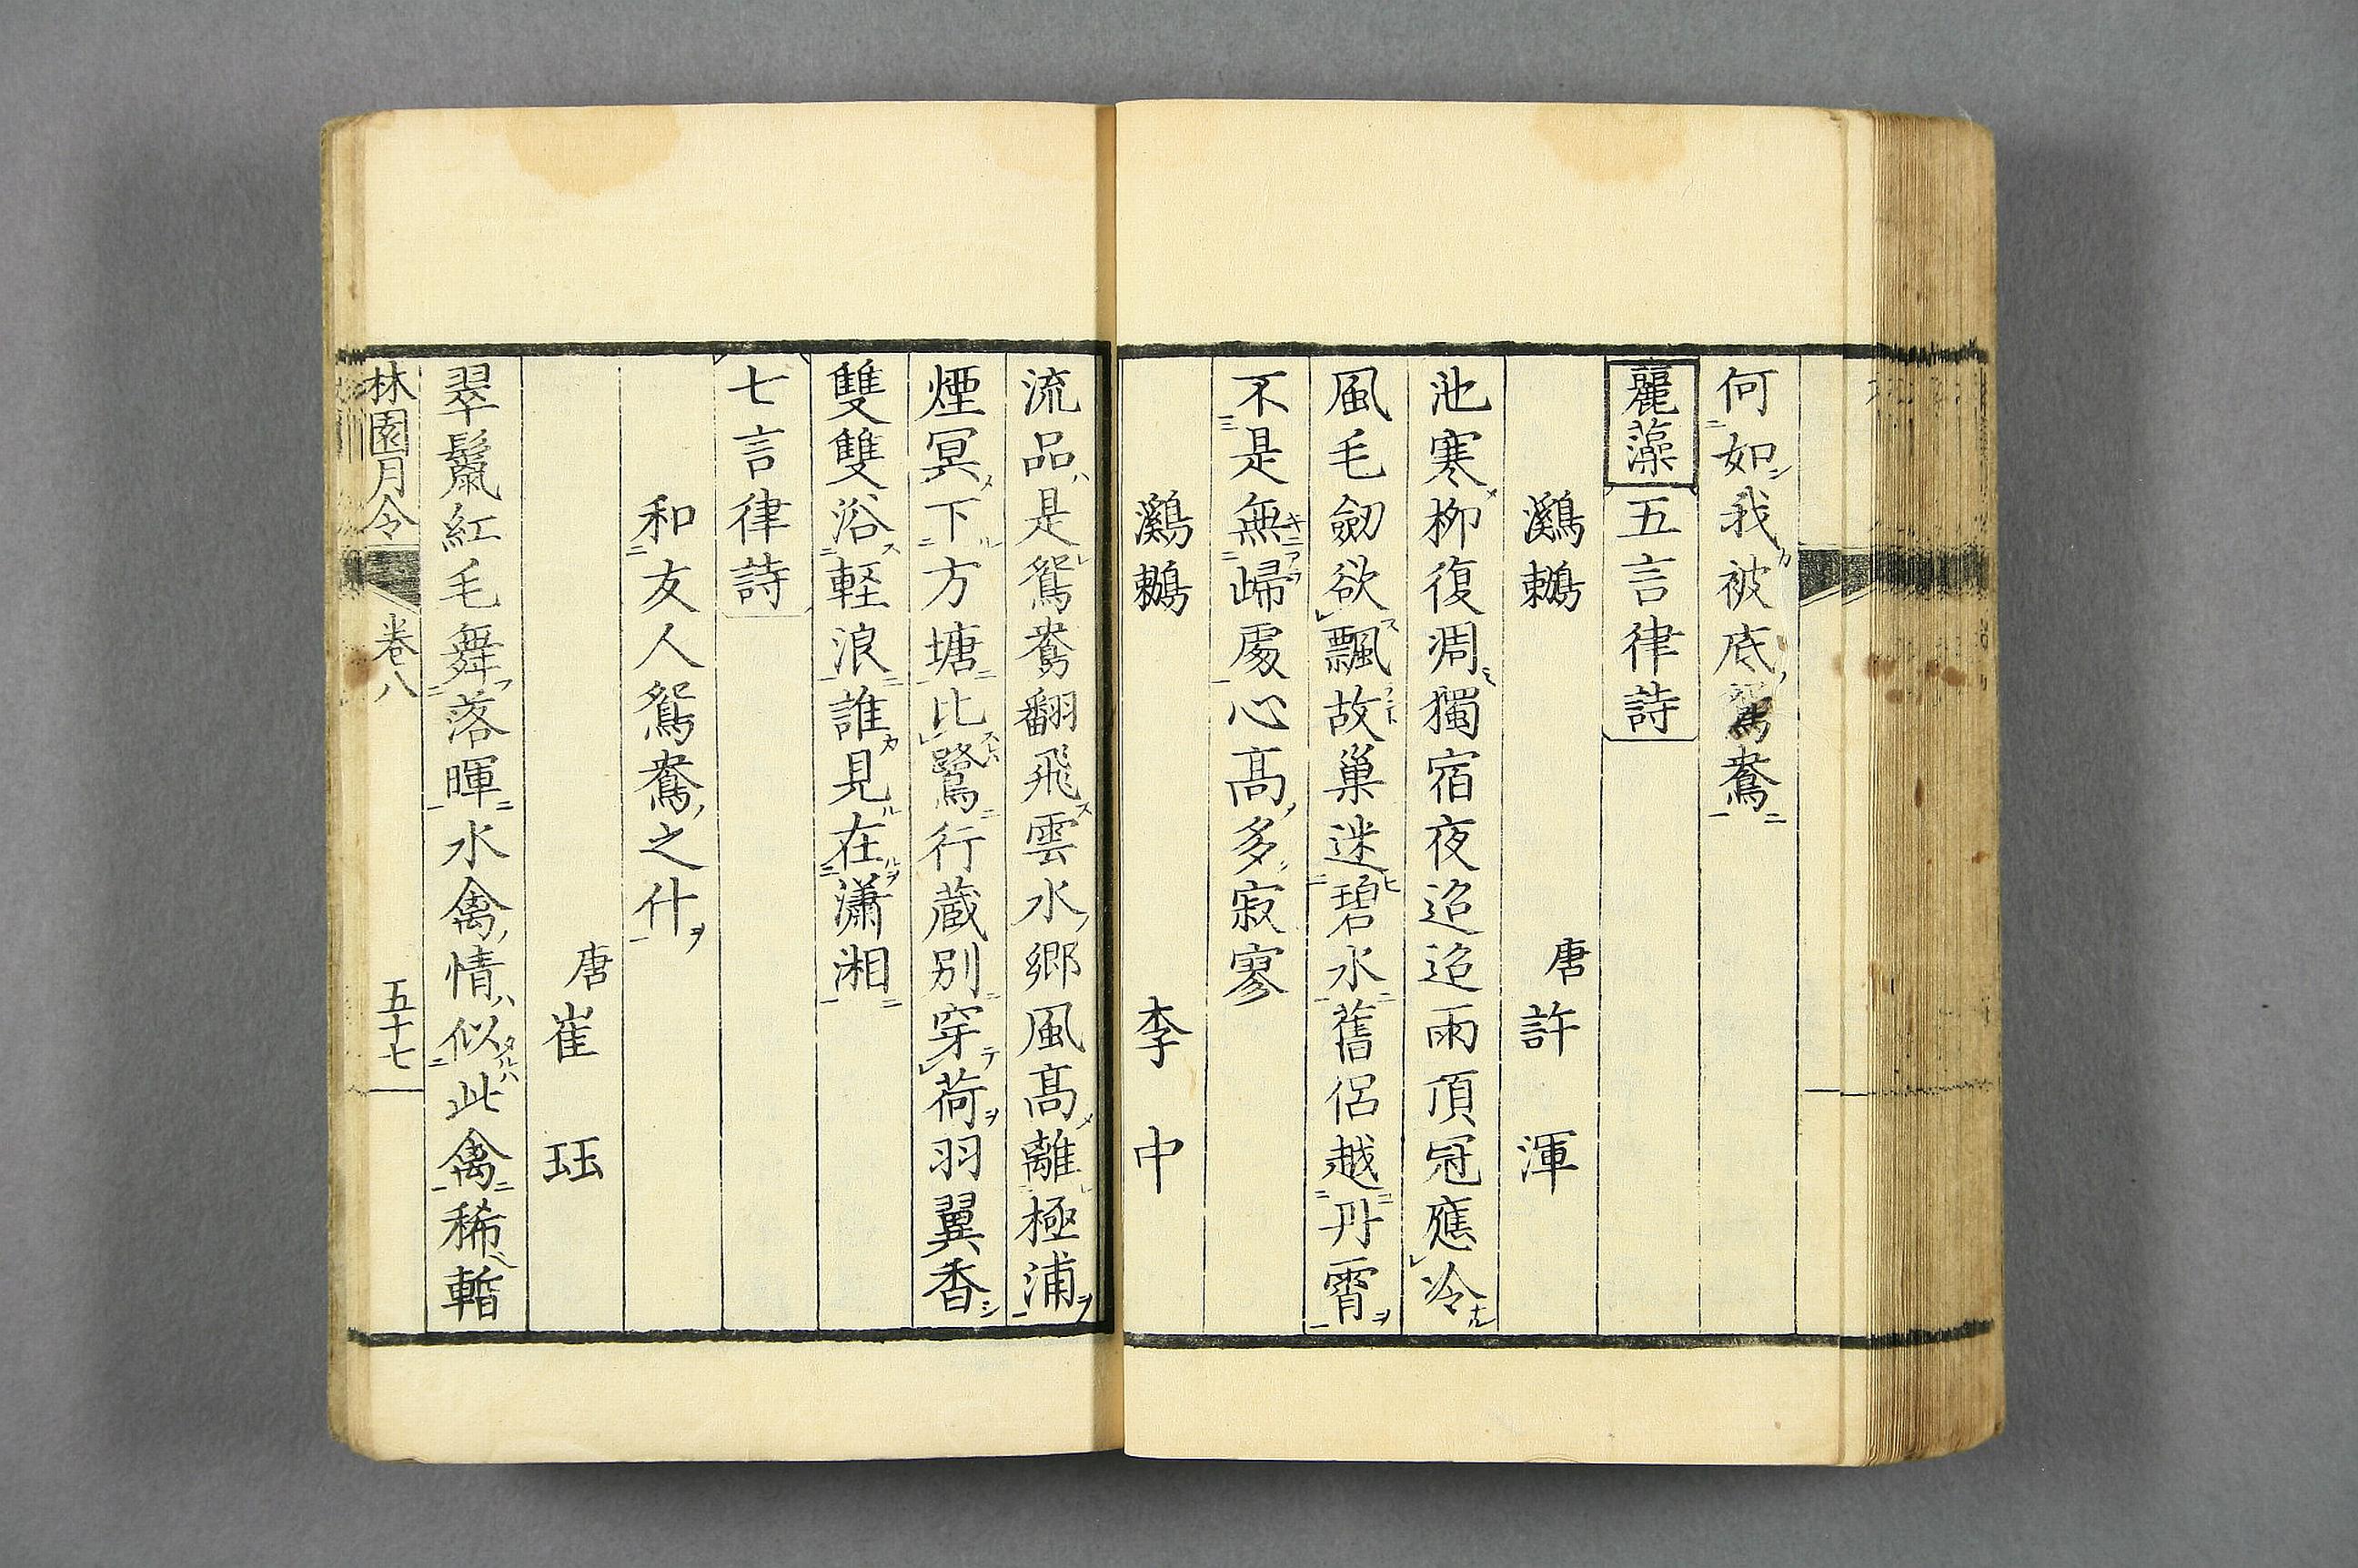 何如我被底鴛鴦
麗藻 五言律詩
鸂鶒 唐 許渾
池寒柳復凋獨宿夜迢迢雨頂冠應冷
風毛劒欲飄故巢迷碧水舊侶越丹霄
不是無歸處心高多寂寥
鸂鶒 李中
流品是鴛鴦翻飛雲水鄉風高離極浦
煙冥下方塘比鷺行藏別穿荷羽翼香
雙雙浴輕浪誰見在瀟湘
七言律詩
和友人鴛鴦之什
唐 崔珏
翠鬣紅毛舞落暉水禽情似此禽稀暫
林園月令 卷八 五十七